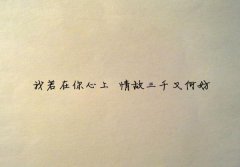 我若在你心上 情敌三千又何妨